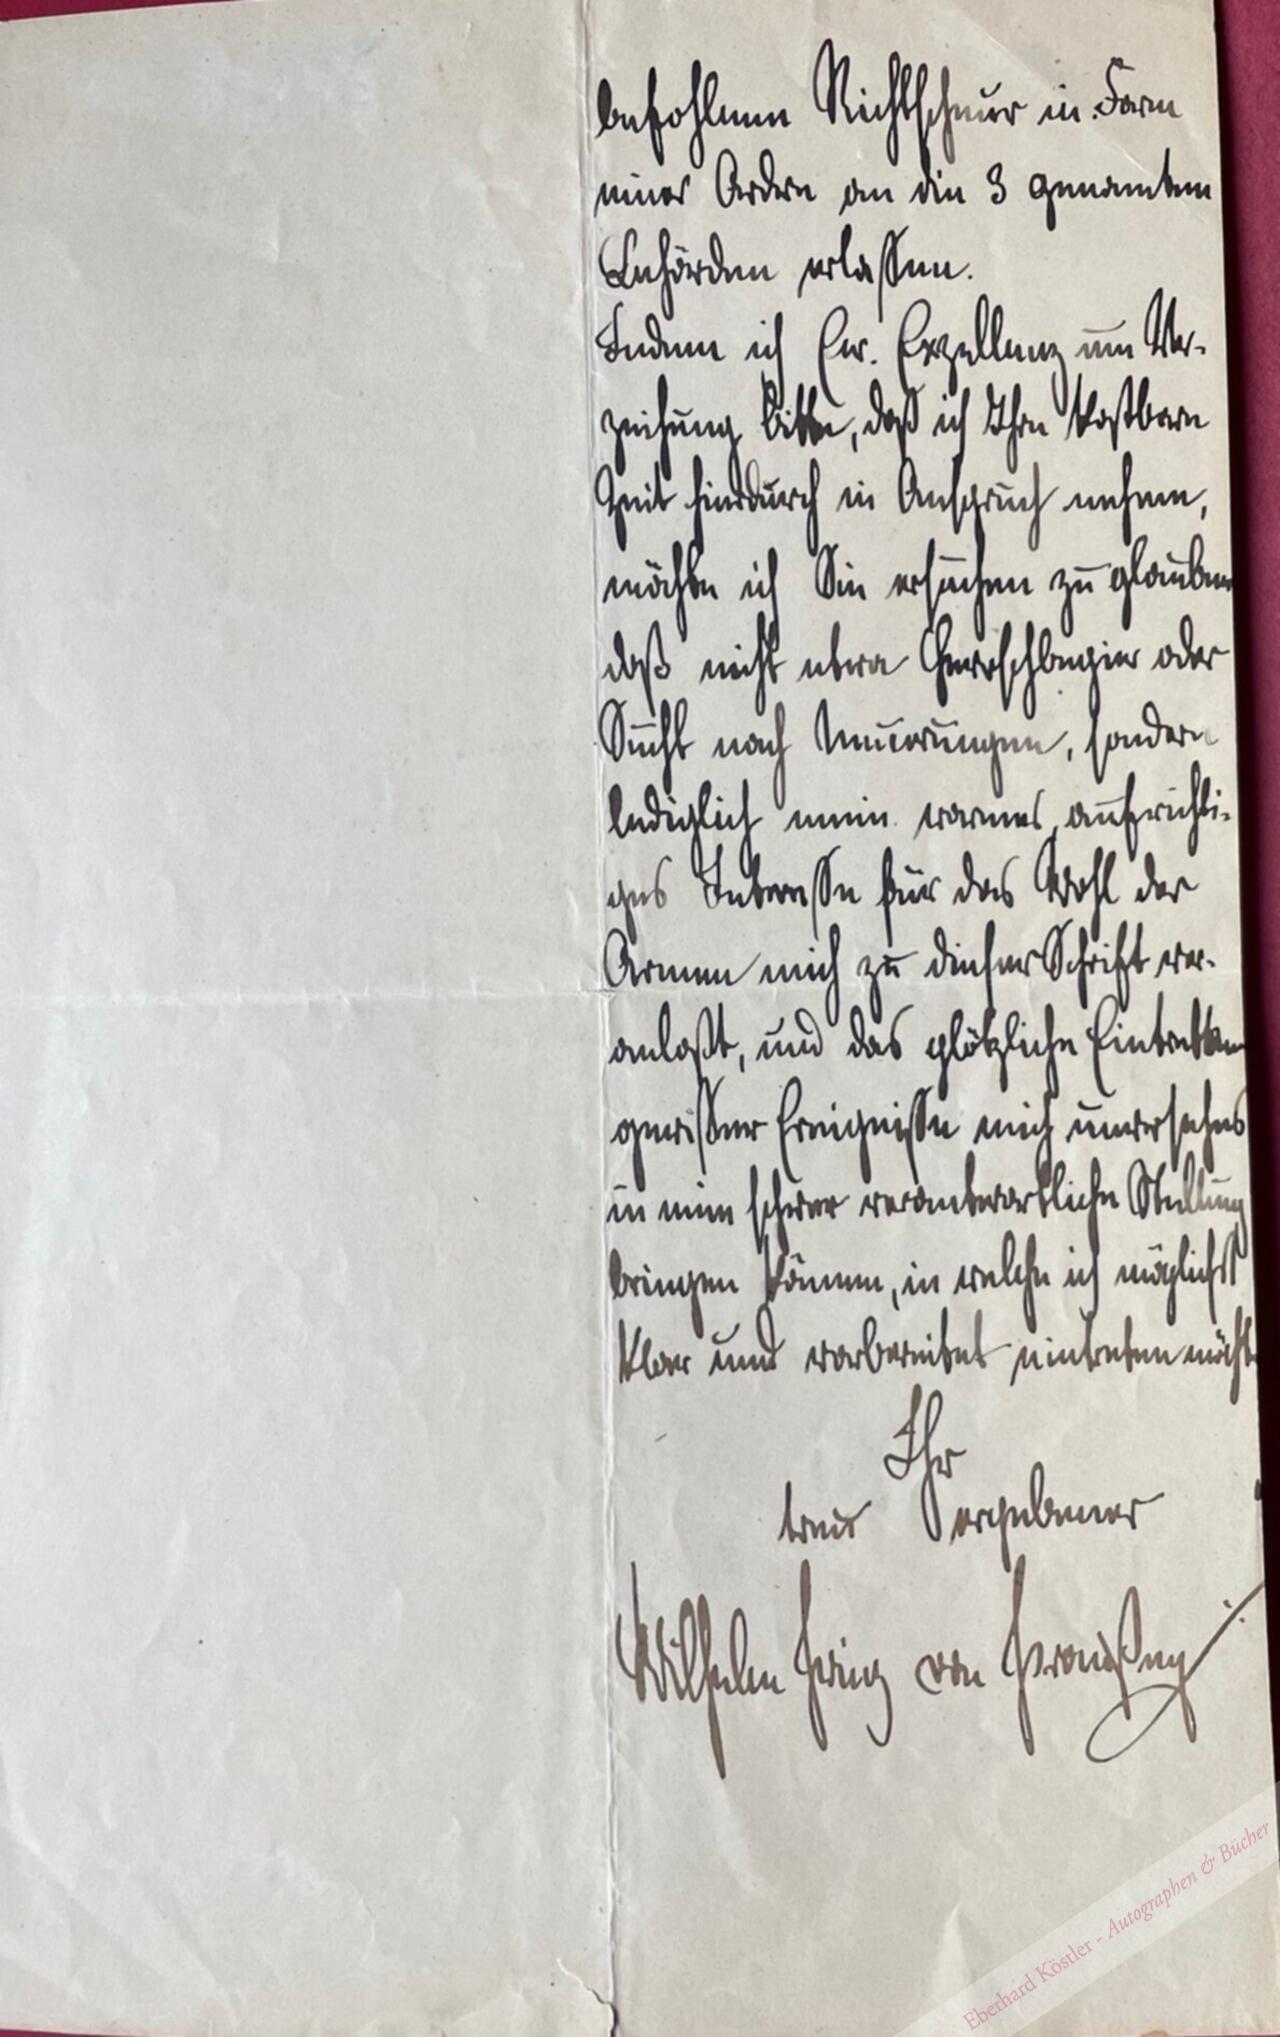 befohlenen Richtschnur in Form
einer Ordre an die 3 genannten
Behörden erlassen.
Indem ich Ew. Exzellenz um Ver-
zeihung bitte, daß ich Ihre kostbare
Zeit hierdurch in Anspruch nehme,
möchte ich Sie ersuchen zu glauben
daß nicht etwa Herrschbegier oder
Sucht nach Neuerungen, sondern
lediglich mein warmes, aufrichti-
ges Interesse für das Wohl der
Armee mich zu dieser Schrift ver-
anlaßt, und das plötzliche Eintretten
gewisser Ereignisse mich unversehens
in eine schwer verantwortliche Stellung
bringen können, in welche ich möglichst
klar und vorbereitet eintreten möchte
Ihr
treu ergebener
Wilhelm Prinz von Preußen
Eberhard Köstler - Autographen & Bücher